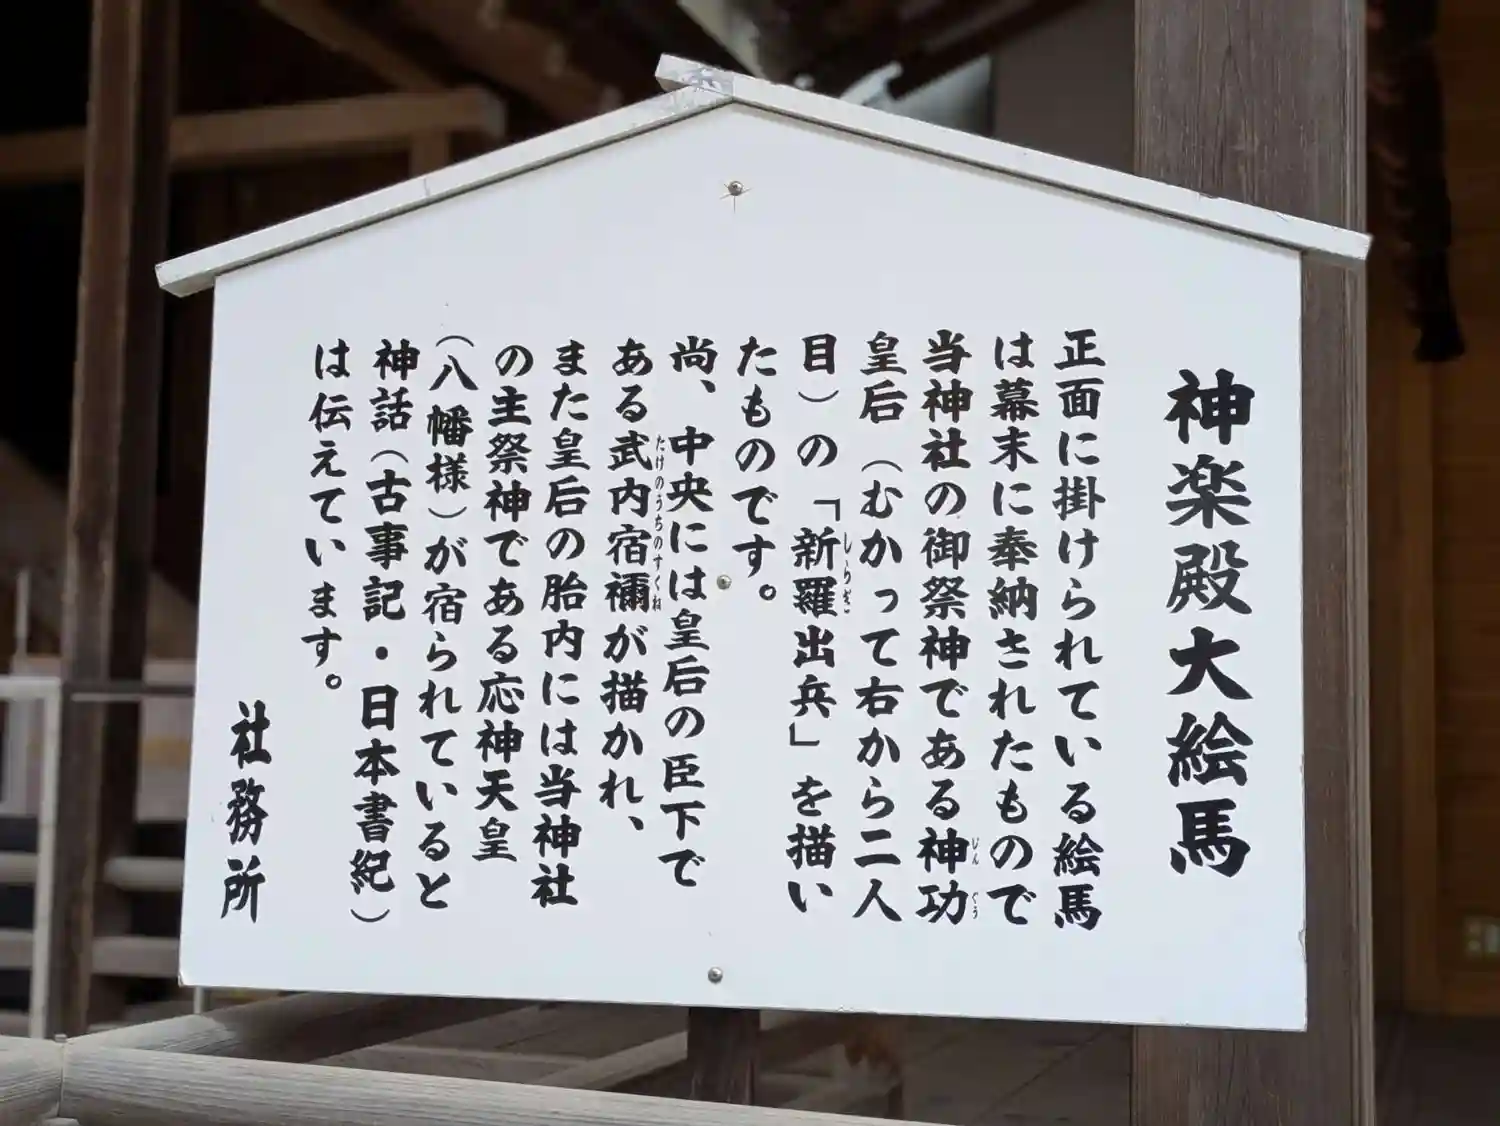 神楽殿大絵馬
正面に掛けられている絵馬
は幕末に奉納されたもので
当神社の御祭神である神功
皇后（むかって右から二人
目）の「新羅出兵」を描い
たものです。
尚、中央には皇后の臣下で
ある武内宿禰が描かれ、
また皇后の胎内には当神社
の主祭神である応神天皇
（八幡様）が宿られていると
神話（古事記・日本書紀）
は伝えています。
社務所